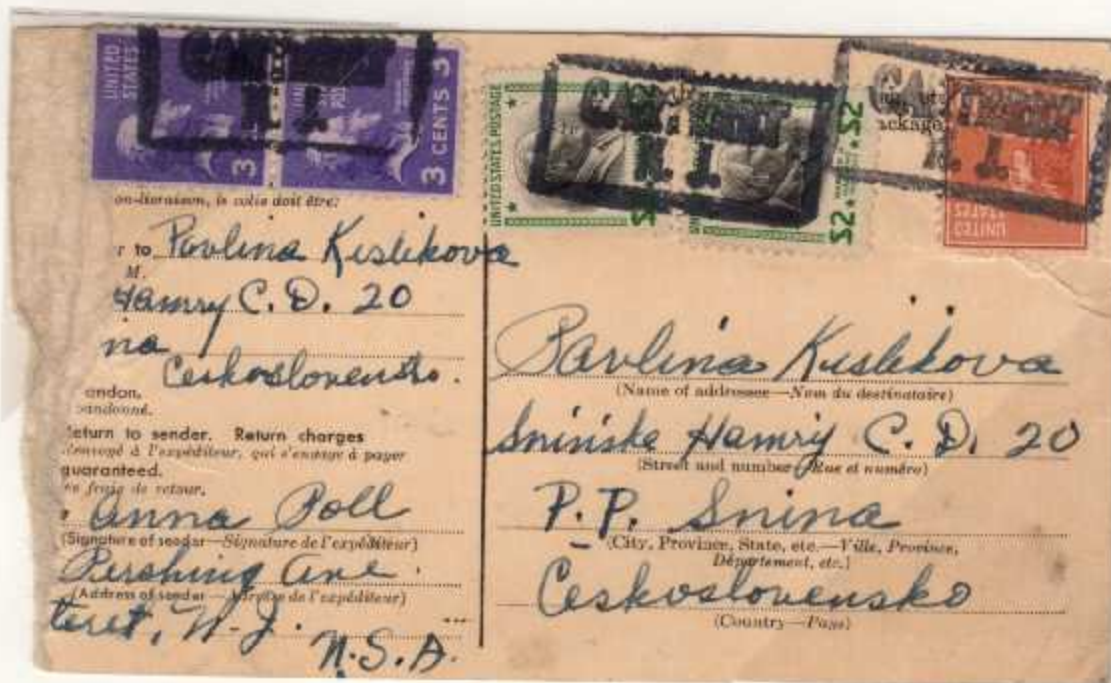 UNITED STATES
3
3 CENTS 3
UNITED STATES POSTAGE
$2
$2
UNITED STATES
ackage
on-livraison, le colis doit être:
r to Pavlina Kislikova
M.
Hamry C. D. 20
na
Ceskoslovensko.
andon.
andonné.
eturn to sender. Return charges
envoyé à l'expéditeur, qui s'engage à payer
guaranteed.
es frais de retour.
Anna Poll
(Signature of sender—Signature de l'expéditeur)
Pershing Ave.
(Address of sender—Adresse de l'expéditeur)
teret, N-J.
U.S.A.
Pavlina Kislikova
(Name of addressee—Nom du destinataire)
Sninske Hamry C. D. 20
(Street and number—Rue et numéro)
P. P. Snina
(City, Province, State, etc.—Ville, Province,
Département, etc.)
Ceskoslovensko
(Country—Pays)